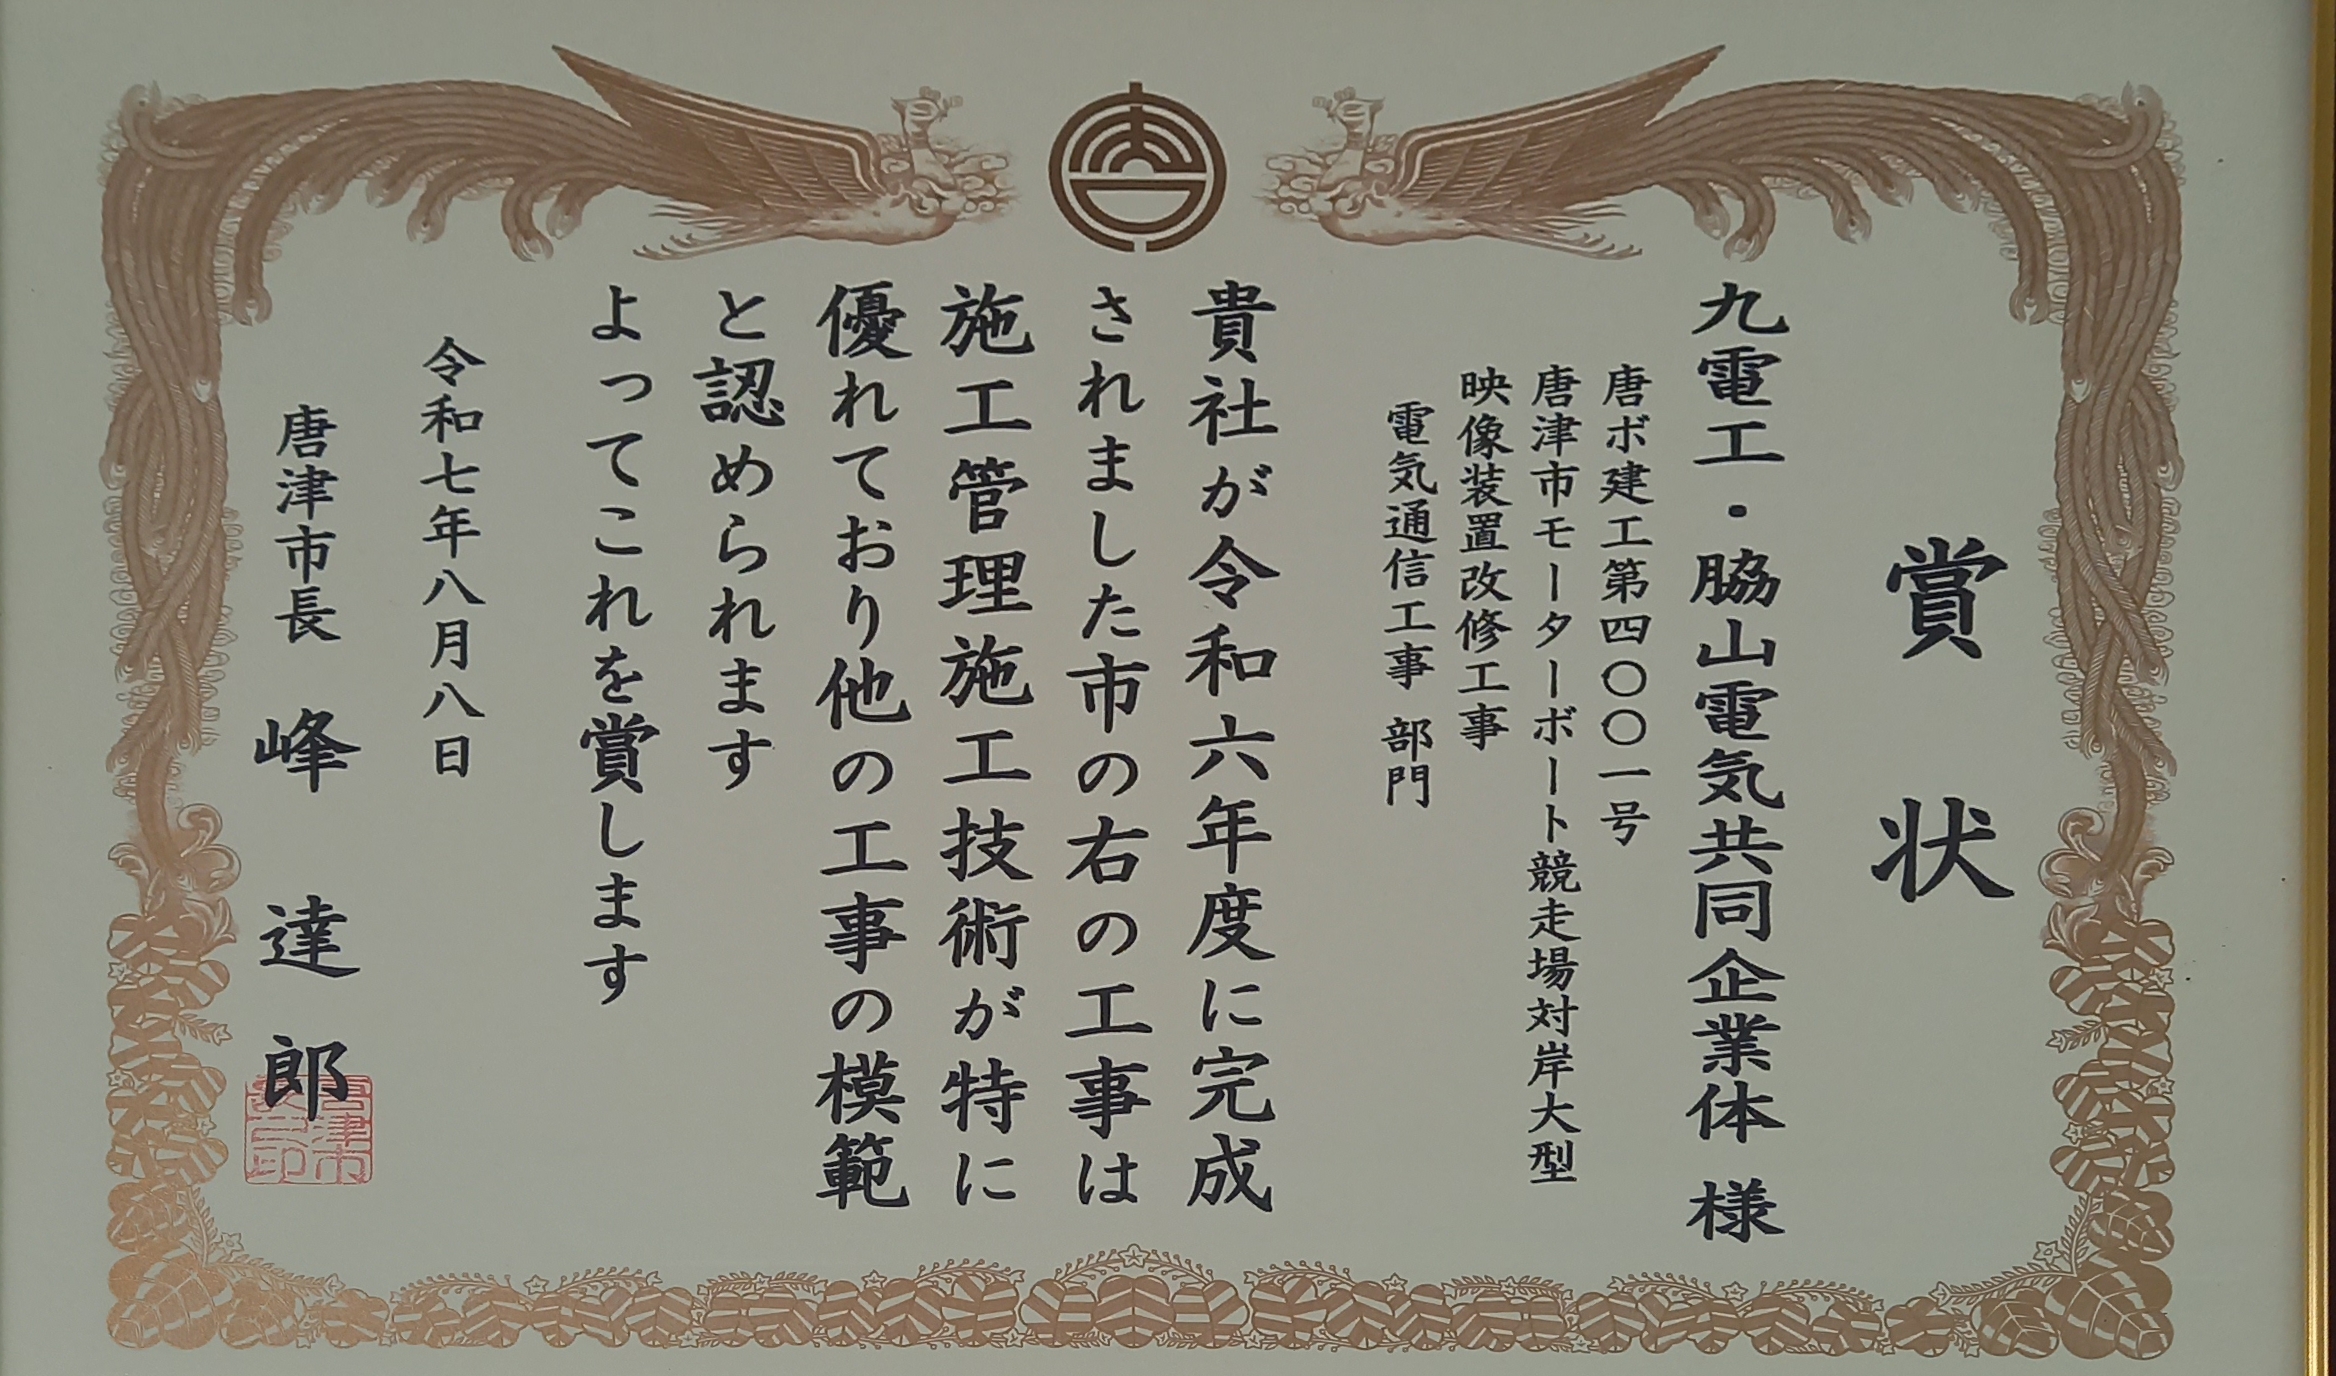 賞状
九電工・脇山電気共同企業体 様
唐ボ建工第四〇〇一号
唐津市モーターボート競走場対岸大型
映像装置改修工事
電気通信工事 部門
貴社が令和六年度に完成
されました市の右の工事は
施工管理施工技術が特に
優れており他の工事の模範
と認められます
よってこれを賞します
令和七年八月八日
唐津市長 峰 達 郎
唐津市
長之印